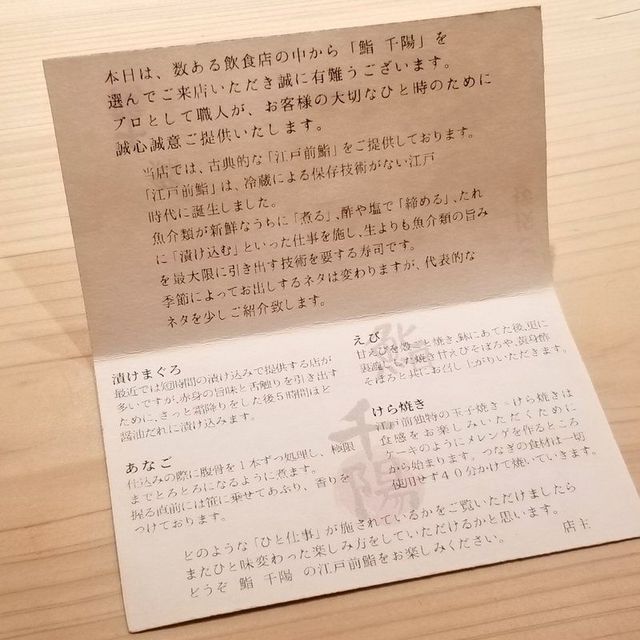 本日は、数ある飲食店の中から「鮨 千陽」を
選んでご来店いただき誠に有難うございます。
プロとして職人が、お客様の大切なひと時のために
誠心誠意ご提供いたします。
当店では、古典的な「江戸前鮨」をご提供しております。
「江戸前鮨」は、冷蔵による保存技術がない江戸
時代に誕生しました。
魚介類が新鮮なうちに「煮る」、酢や塩で「締める」、たれ
に「漬け込む」といった仕事を施し、生よりも魚介類の旨み
を最大限に引き出す技術を要する寿司です。
季節によってお出しするネタは変わりますが、代表的な
ネタを少しご紹介致します。
漬けまぐろ
最近では短時間の漬け込みで提供する店が
多いですが、赤身の旨味と舌触りを引き出す
ために、さっと霜降りをした後5時間ほど
醤油だれに漬け込みます。
あなご
仕込みの際に腹骨を1本ずつ処理し、極限
までとろとろになるように煮ます。
握る直前には笹に乗せてあぶり、香りを
つけております。
えび
甘えびを殻ごと焼き、鉢にあてた後、更に
裏漉しした焼き甘えびそぼろや、黄身酢
そぼろと共にお召し上がりいただきます。
けら焼き
江戸前独特の玉子焼き・けら焼きは
食感をお楽しみいただくために
ケーキのようにメレンゲを作るところ
から始まります。つなぎの食材は一切
使用せず40分かけて焼いていきます。
鮨 千陽
どのような「ひと仕事」が施されているかをご覧いただけましたら
またひと味変わった楽しみ方をしていただけるかと思います。
どうぞ 鮨 千陽 の江戸前鮨をお楽しみください。
店主